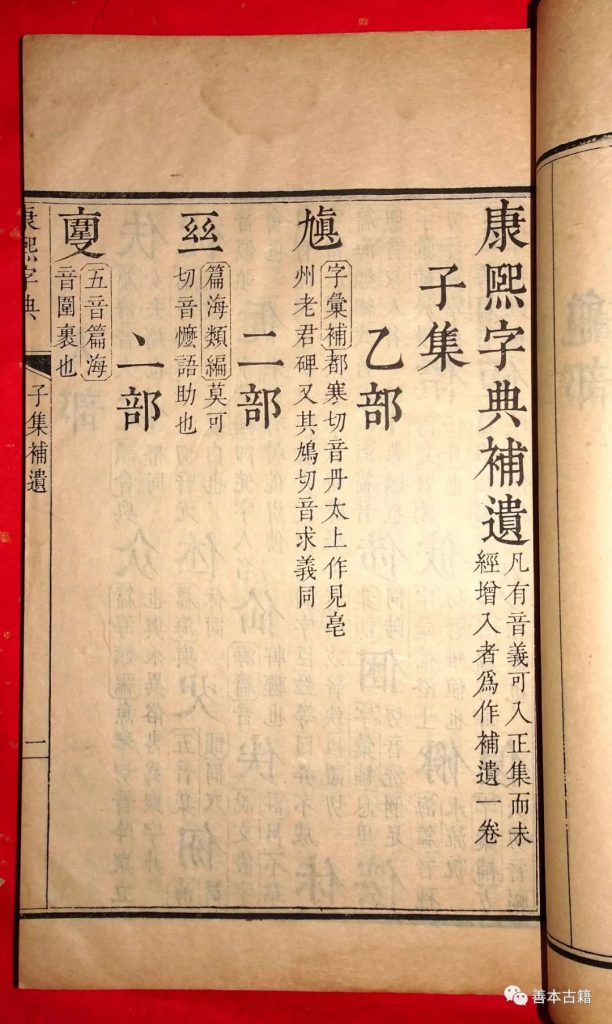 康熙字典補遺
凡有音義可入正集而未
經增入者爲作補遺一卷
子集
乙部
字彙補都寒切音丹太上作見亳
州老君碑又其鳩切音求義同
二部
篇海類編莫可
切音懡語助也
亠部
五音篇海
音圍裹也
康熙字典
子集補遺
二
善本古籍